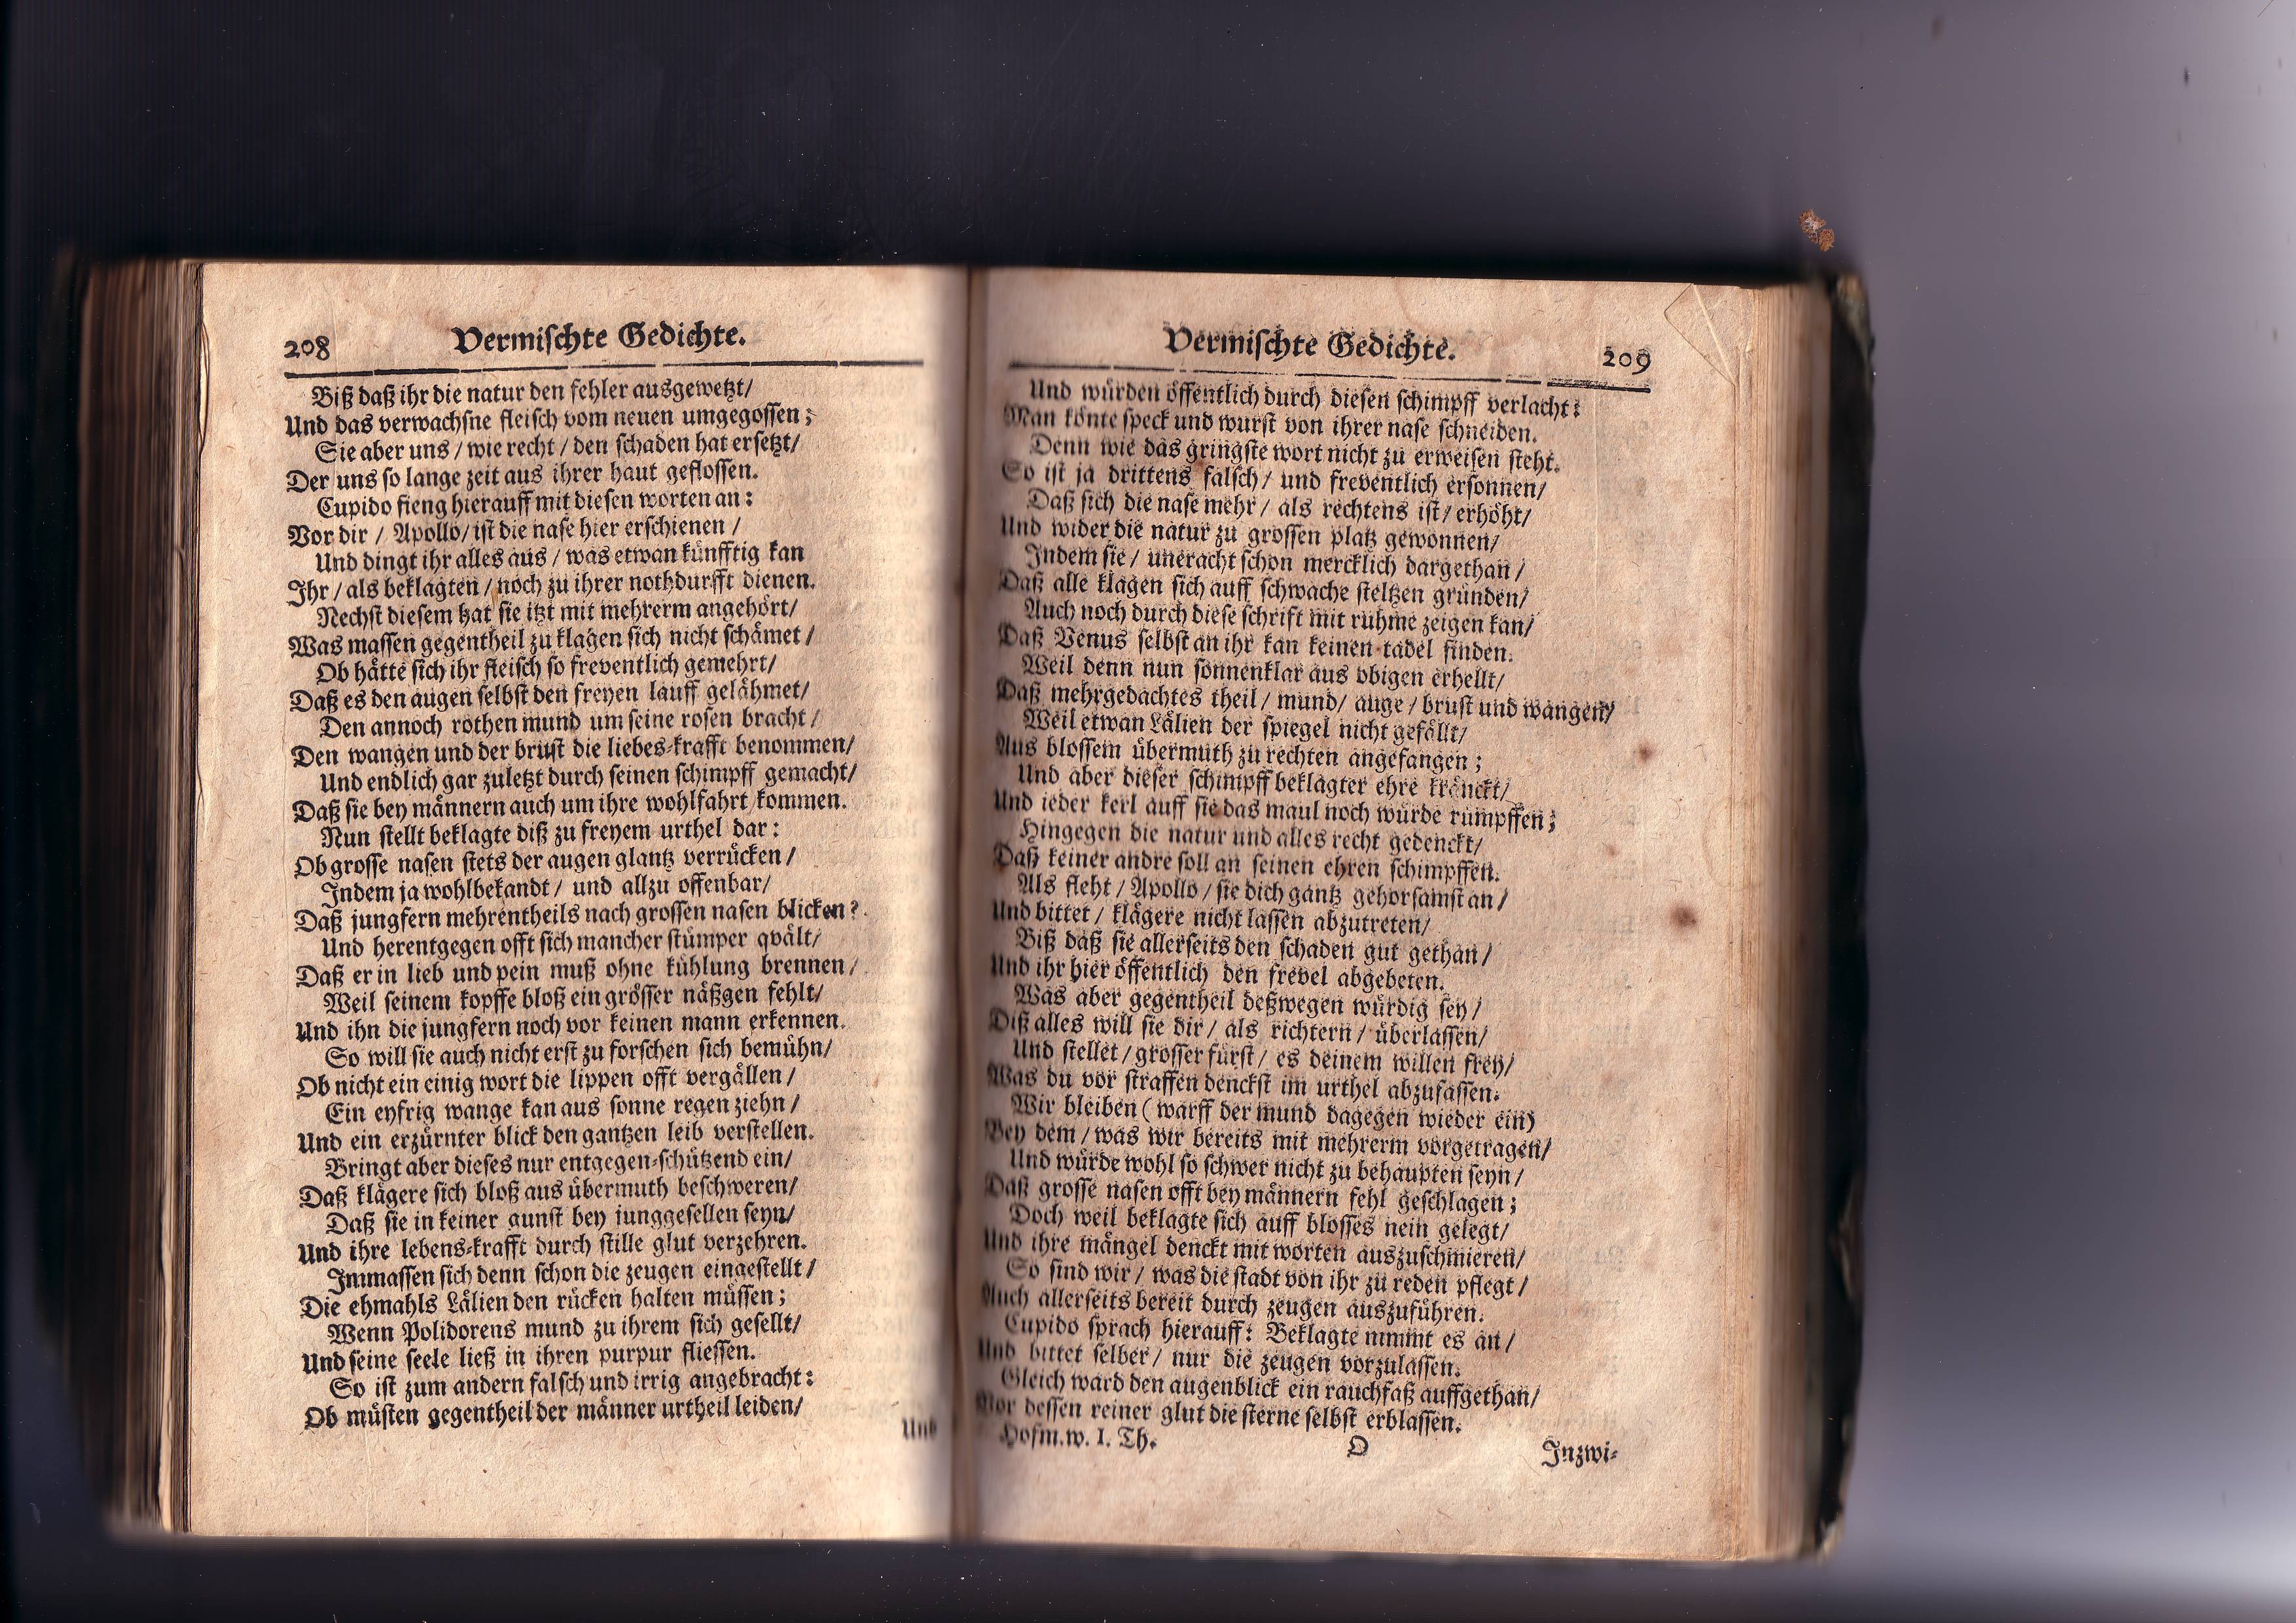 208
Vermischte Gedichte.
Biß daß ihr die natur den fehler ausgewetzt/
Und das verwachsne fleisch vom neuen umgegossen;
Sie aber uns / wie recht / den schaden hat ersetzt/
Der uns so lange zeit aus ihrer haut geflossen.
Cupido fieng hierauff mit diesen worten an:
Vor dir / Apollo / ist die nase hier erschienen /
Und dingt ihr alles aus / was etwan künfftig kan
Ihr / als beklagten / noch zu ihrer nothdurfft dienen.
Nechst diesem hat sie itzt mit mehrerm angehört/
Was massen gegentheil zu klagen sich nicht schämet /
Ob hätte sich ihr fleisch so freventlich gemehrt/
Daß es den augen selbst den freyen lauff gelähmet/
Den annoch rothen mund um seine rosen bracht /
Den wangen und der brust die liebes-krafft benommen/
Und endlich gar zuletzt durch seinen schimpff gemacht/
Daß sie bey männern auch um ihre wohlfahrt kommen.
Nun stellt beklagte diß zu freyem urthel dar:
Ob grosse nasen stets der augen glantz verrücken /
Indem ja wohlbekandt / und allzu offenbar/
Daß jungfern mehrentheils nach grossen nasen blicken?
Und herentgegen offt sich mancher stümper qvält/
Daß er in lieb und pein muß ohne kühlung brennen /
Weil seinem kopffe bloß ein grösser näßgen fehlt/
Und ihn die jungfern noch vor keinen mann erkennen.
So will sie auch nicht erst zu forschen sich bemühn/
Ob nicht ein einig wort die lippen offt vergällen /
Ein eyfrig wange kan aus sonne regen ziehn /
Und ein erzürnter blick den gantzen leib verstellen.
Bringt aber dieses nur entgegen-schützend ein/
Daß klägere sich bloß aus übermuth beschweren/
Daß sie in keiner gunst bey junggesellen seyn/
Und ihre lebens-krafft durch stille glut verzehren.
Immassen sich denn schon die zeugen eingestellt /
Die ehmahls Lälien den rücken halten müssen;
Wenn Polidorens mund zu ihrem sich gesellt/
Und seine seele ließ in ihren purpur fliessen.
So ist zum andern falsch und irrig angebracht:
Ob müsten gegentheil der männer urtheil leiden/
Und
Vermischte Gedichte.
209
Und würden öffentlich durch diesen schimpff verlacht:
Man könte speck und wurst von ihrer nase schneiden.
Denn wie das gringste wort nicht zu erweisen steht.
So ist ja drittens falsch / und freventlich ersonnen/
Daß sich die nase mehr / als rechtens ist / erhöht/
Und wider die natur zu grossen platz gewonnen/
Indem sie / uneracht schon mercklich dargethan /
Daß alle klagen sich auff schwache steltzen gründen/
Auch noch durch diese schrift mit ruhme zeigen kan/
Daß Venus selbst an ihr kan keinen tadel finden.
Weil denn nun sonnenklar aus obigen erhellt/
Daß mehrgedachtes theil / mund / auge / brust und wangen/
Weil etwan Lälien der spiegel nicht gefällt/
Aus blossem übermuth zu rechten angefangen;
Und aber dieser schimpff beklagter ehre kränckt/
Und ieder kerl auff sie das maul noch würde rümpffen;
Hingegen die natur und alles recht gedenckt/
Daß keiner andre soll an seinen ehren schimpffen.
Als fleht / Apollo / sie dich gantz gehorsamst an /
Und bittet / klägere nicht lassen abzutreten/
Biß daß sie allerseits den schaden gut gethan /
Und ihr hier öffentlich den frevel abgebeten.
Was aber gegentheil deßwegen würdig sey /
Diß alles will sie dir / als richtern / überlassen/
Und stellet / grosser fürst / es deinem willen frey/
Was du vor straffen denckst im urthel abzufassen.
Wir bleiben (warff der mund dagegen wieder ein)
Bey dem / was wir bereits mit mehrerm vorgetragen/
Und würde wohl so schwer nicht zu behaupten seyn /
Daß grosse nasen offt bey männern fehl geschlagen;
Doch weil beklagte sich auff blosses nein gelegt/
Und ihre mängel denckt mit worten auszuschmieren/
So sind wir / was die stadt von ihr zu reden pflegt /
Auch allerseits bereit durch zeugen auszuführen.
Cupido sprach hierauff: Beklagte nimmt es an /
Und bittet selber / nur die zeugen vorzulassen.
Gleich ward den augenblick ein rauchfaß auffgethan/
Vor dessen reiner glut die sterne selbst erblassen.
Hofm.w. I. Th.
O
Inzwi-